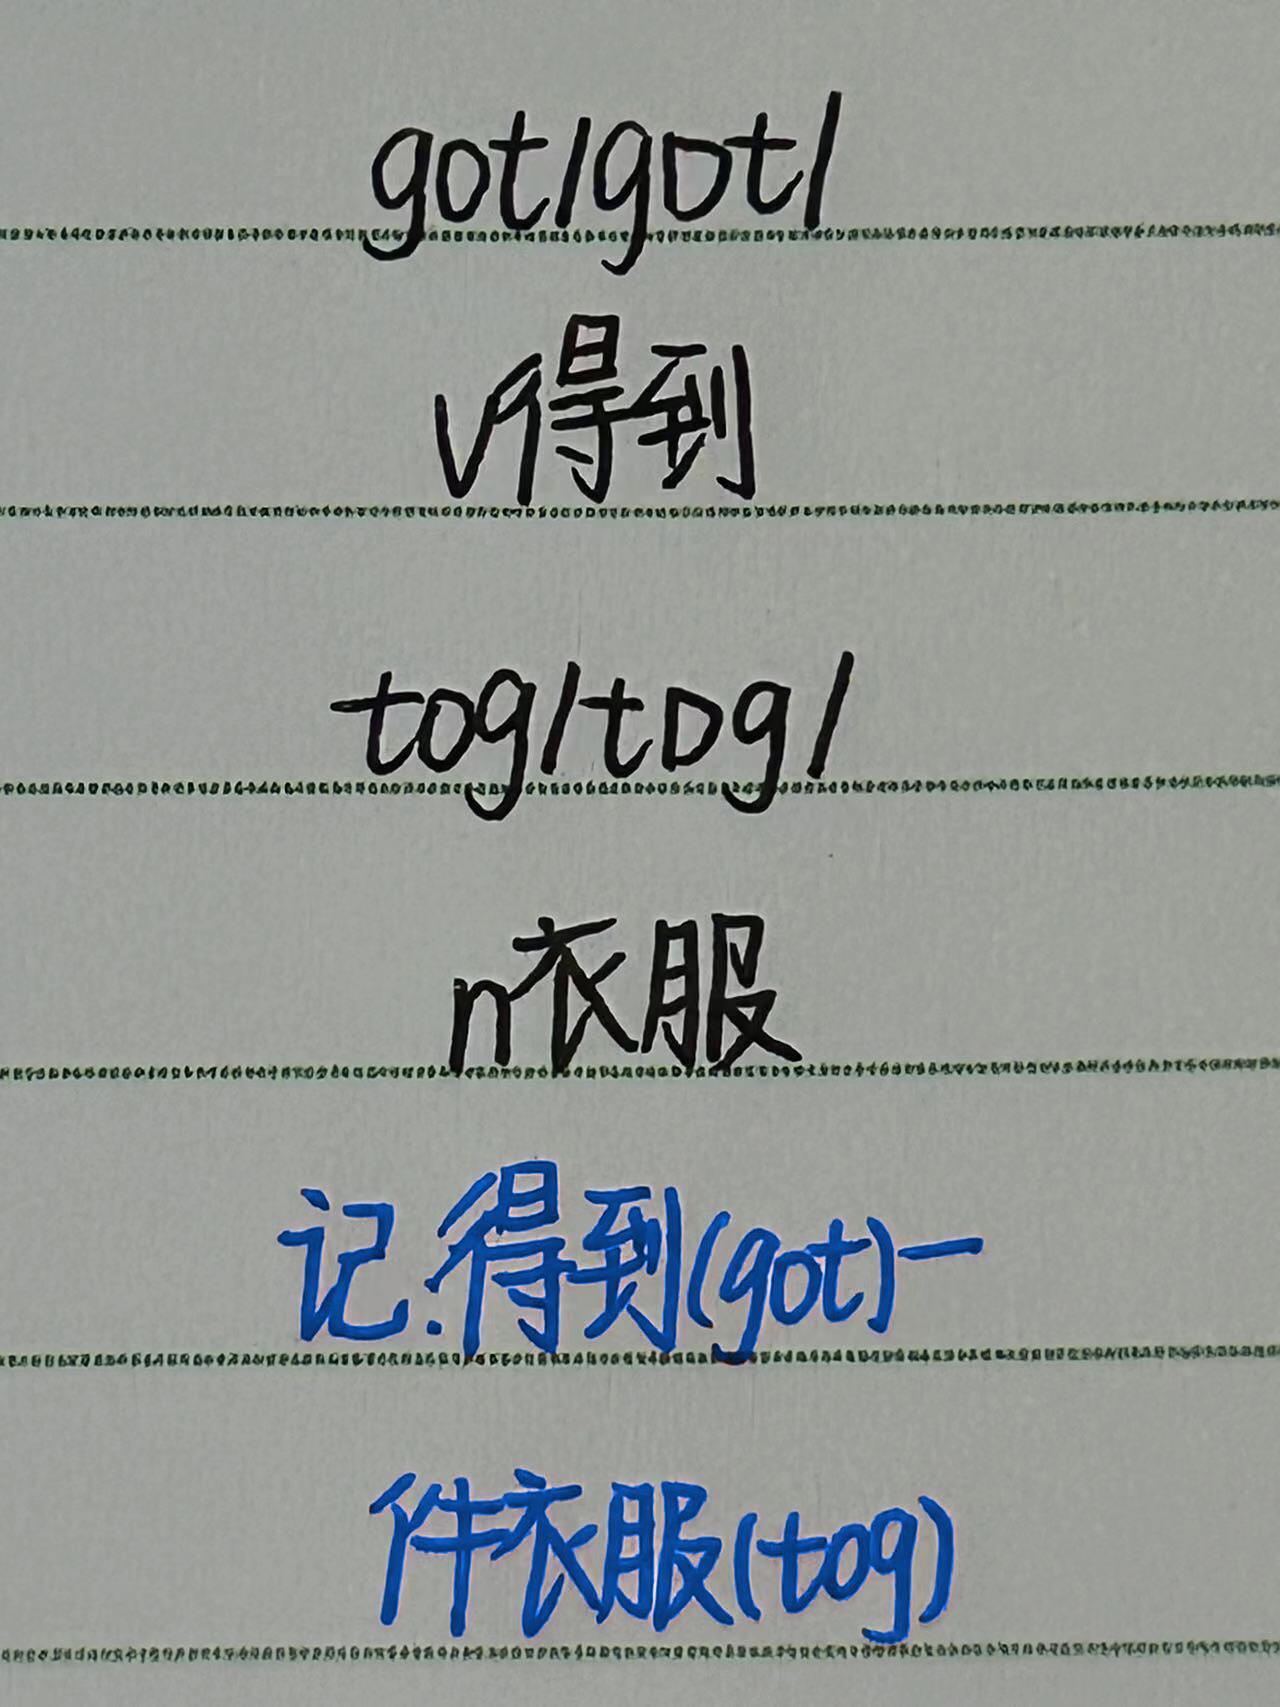 got/gɒt/
v得到
tog/tɒg/
n衣服
记:得到(got)一
件衣服(tog)